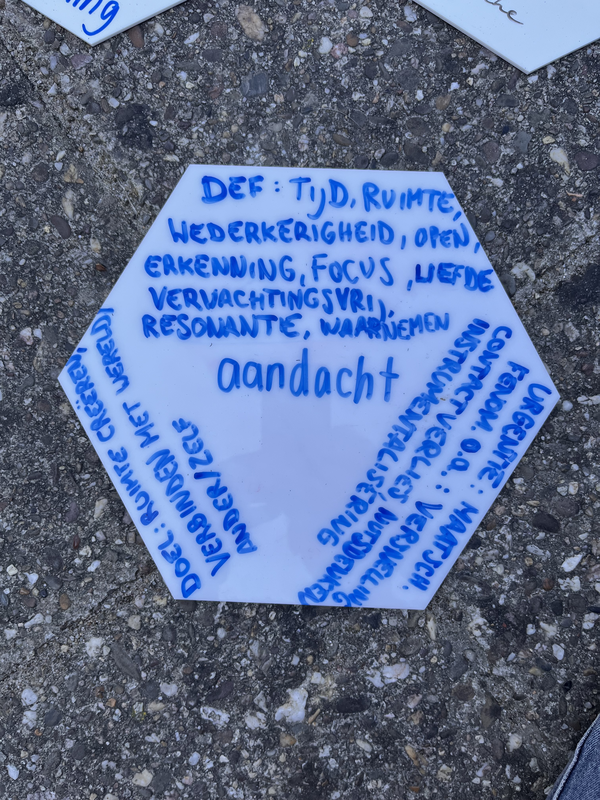 DEF: TIJD, RUIMTE,
WEDERKERIGHEID, OPEN,
ERKENNING, FOCUS, LIEFDE
VERWACHTINGSVRIJ,
RESONANTIE, WAARNEMEN
aandacht
URGENTIE: MAATSCH.
FENOM. O.A.: VERSNELLING
CONTACTVERLIES NUTSDENKEN
INSTRUMENTALISERING
DOEL: RUIMTE CREËREN,
VERBINDEN MET WERELD/
ANDER/ZELF